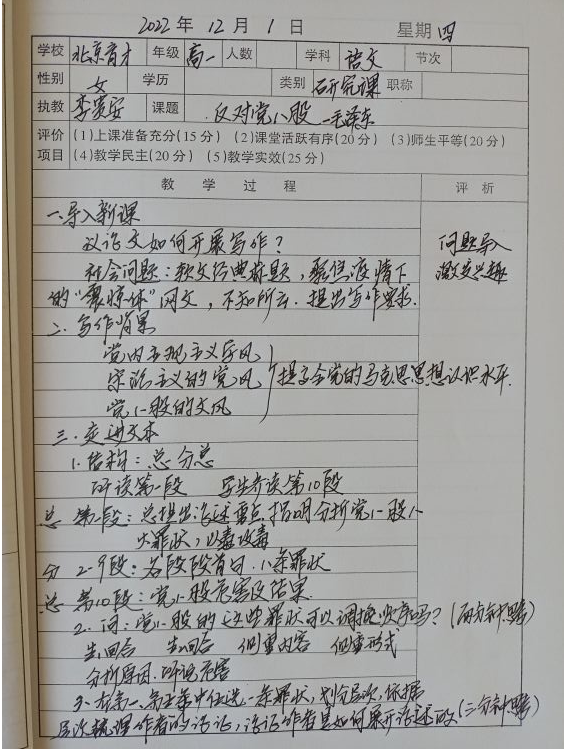 2022年12月1日 星期四
学校 北京育才 年级 高一 人数 学科 语文 节次
性别 女 学历 类别 研究课 职称
执教 李 安 课题 反对党八股 毛泽东
评价 (1)上课准备充分(15分) (2)课堂活跃有序(20分) (3)师生平等(20分)
项目 (4)教学民主(20分) (5)教学实效(25分)
教学过程 评析
一.导入新课
议论文如何开展写作? 问题导入
社会问题:软文经典标题,聚焦疫情下 激发兴趣
的"震惊体"网文,不知所云.提出写作要求.
二.写作背景
党内主观主义学风
宗派主义的党风 提高全党的马克思思想认识水平.
党八股的文风
三.走进文本
1.结构:总 分 总
研读第一段 学生齐读第10段
总 第一段:总提出论述重点,指明分析党八股八
大罪状,以毒攻毒
分 2-9段:各段段首句.八条罪状
总 第10段:党八股危害及结果.
2.问:党八股的这些罪状可以调换顺序吗?(两分钟思考)
生1回答 生2回答 侧重内容 侧重形式
分析原因.听说危害
3.在第一、第 条中任选一条罪状,划分层次,依据
层次梳理作者的论证,论证作者是如何展开论述的(三分钟思考)